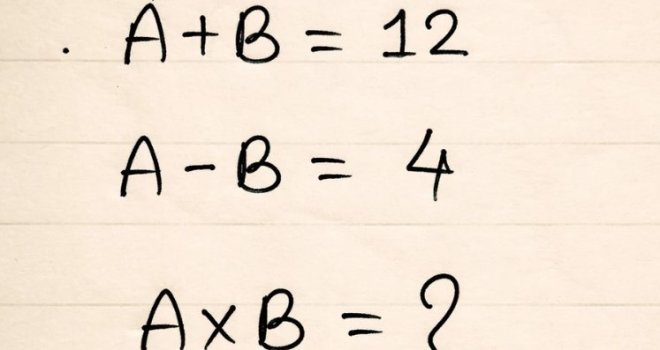 . A + B = 12
A - B = 4
A × B = ?